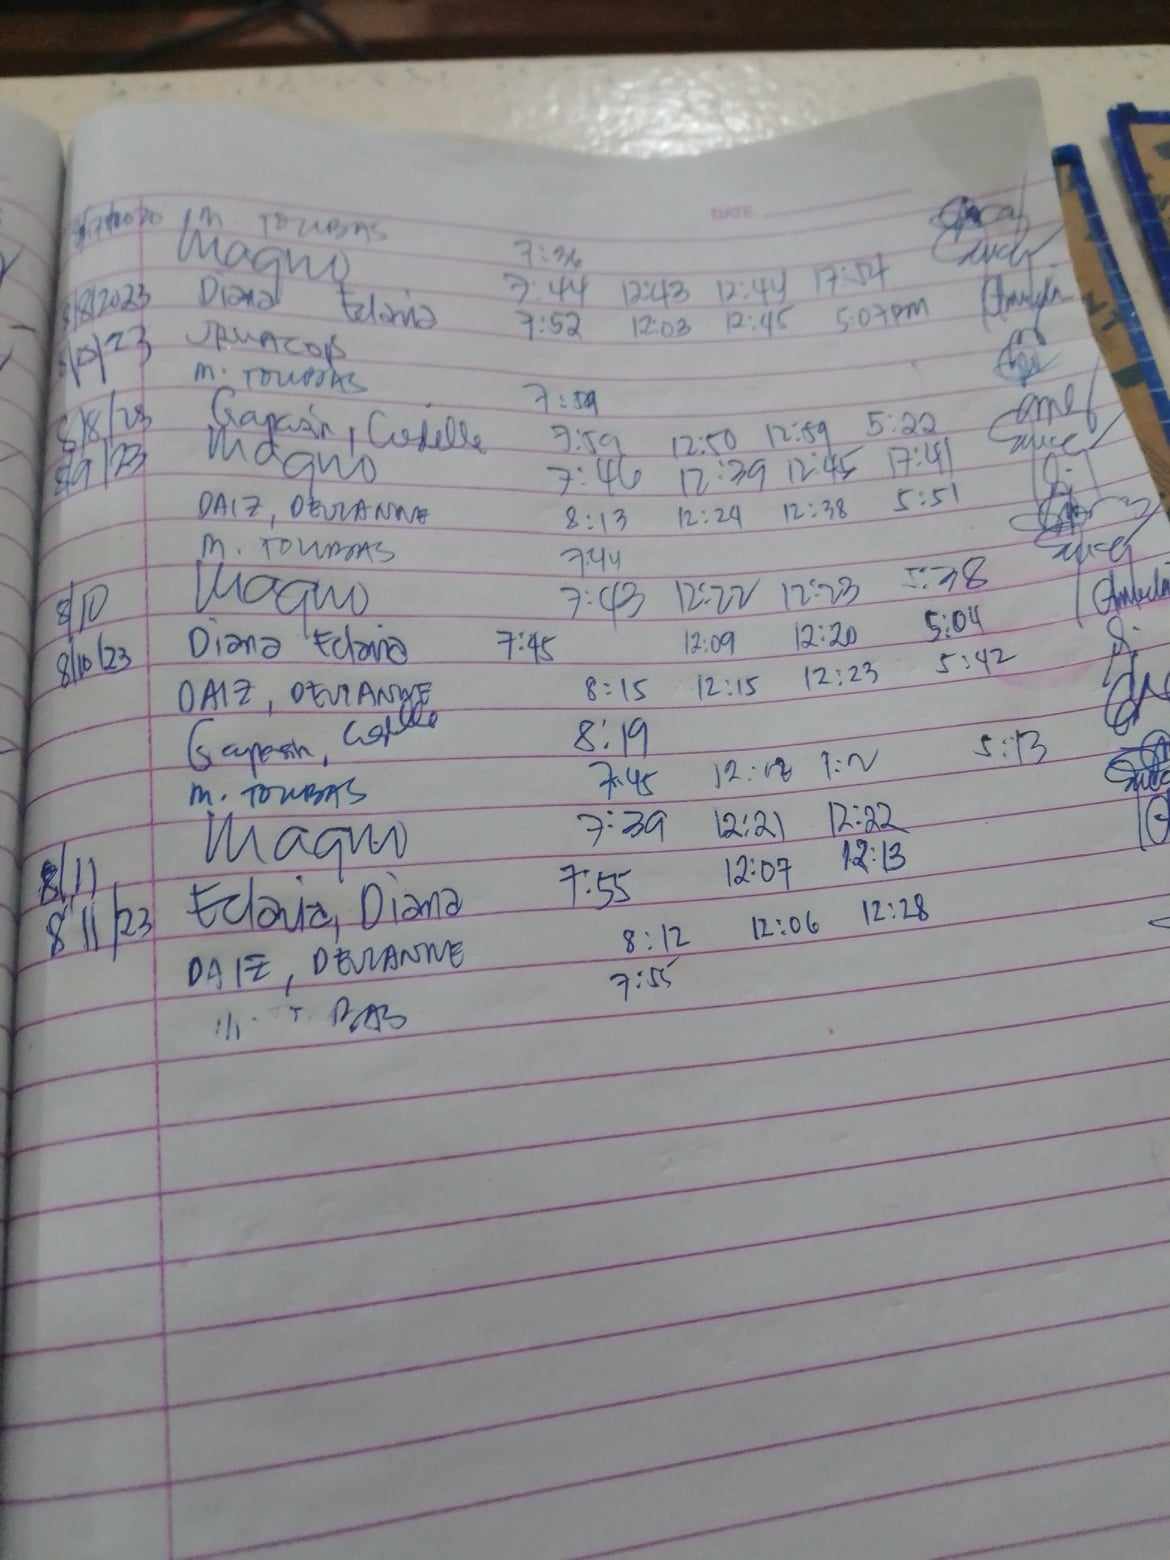 DATE
M. TOURBAS 7:36
Magno 7:44 12:43 12:44 17:57
8/8/2023 Diana Eclavia 7:52 12:03 12:45 5:07pm
8/10/23
M. TOURBAS 7:59
8/8/23 Gapasin, 7:59 12:50 12:59 5:22
8/9/23 Magno 7:46 12:39 12:45 17:41
DAIZ, DEVIANNE 8:13 12:24 12:38 5:51
M. TOURBAS 7:44
8/10 Magno 7:43 12:22 12:23 5:38
8/10/23 Diana Eclavia 7:45 12:09 12:20 5:04
DAIZ, DEVIANNE 8:15 12:15 12:23 5:42
Gapasin, 8:19
M. TOURBAS 7:45 5:13
8/11 Magno 7:39 12:21 12:22
8/11/23 Eclavia, Diana 7:55 12:07 12:13
DAIZ, DEVIANNE 8:12 12:06 12:28
7:55